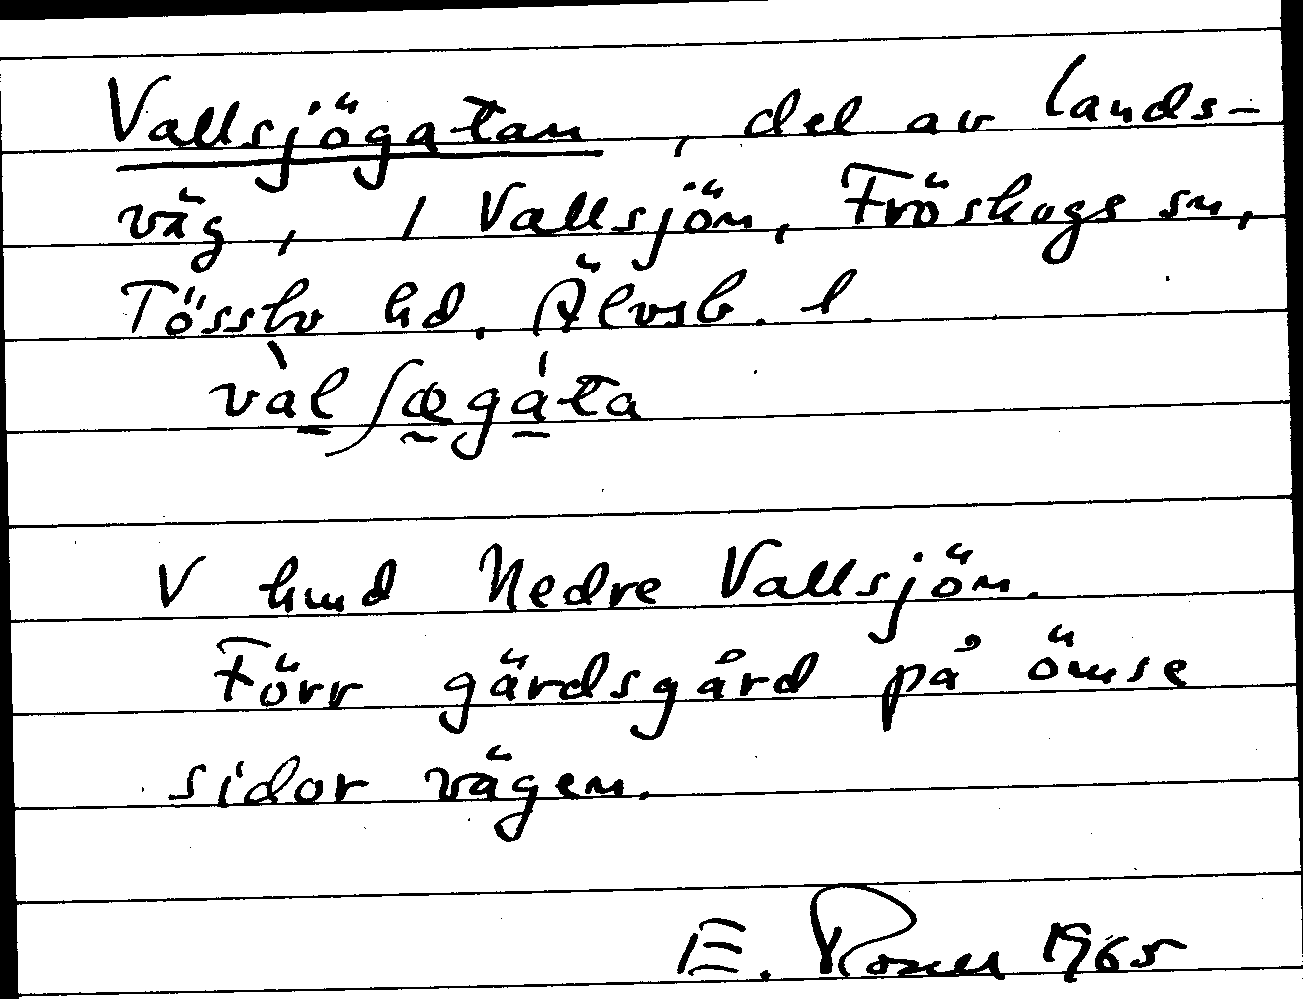 Vallsjögatan, del av lands-
väg, / Vallsjön, Fröskogs sn,
Tössbo hd. Älvsb. l.
V hmd Nedre Vallsjön.
Förr gärdsgård på ömse
sidor vägen.
E. Rosell 1965